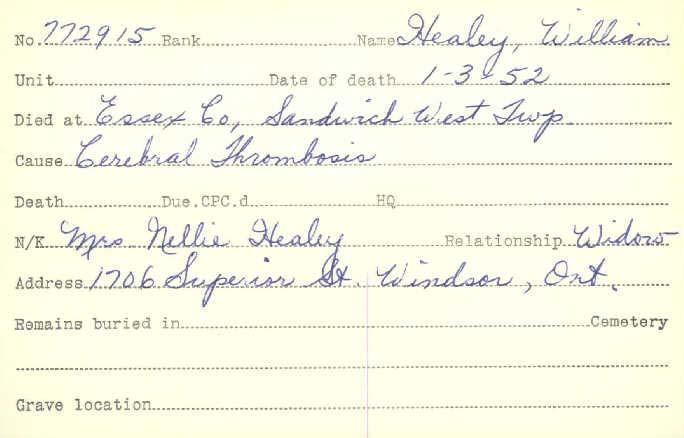 No. 772915 Rank Name Healey, William
Unit Date of death 1-3-52
Died at Essex Co, Sandwich West Twp
Cause Cerebral Thrombosis
Death Due.CPC.d HQ
N/K Mrs Nellie Healey Relationship Widow
Address 1706 Superior St. Windsor, Ont.
Remains buried in Cemetery
Grave location